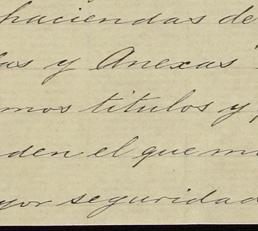 haciendas de
las y Anexas"
mos titulos y
den el que m
yor seguridad